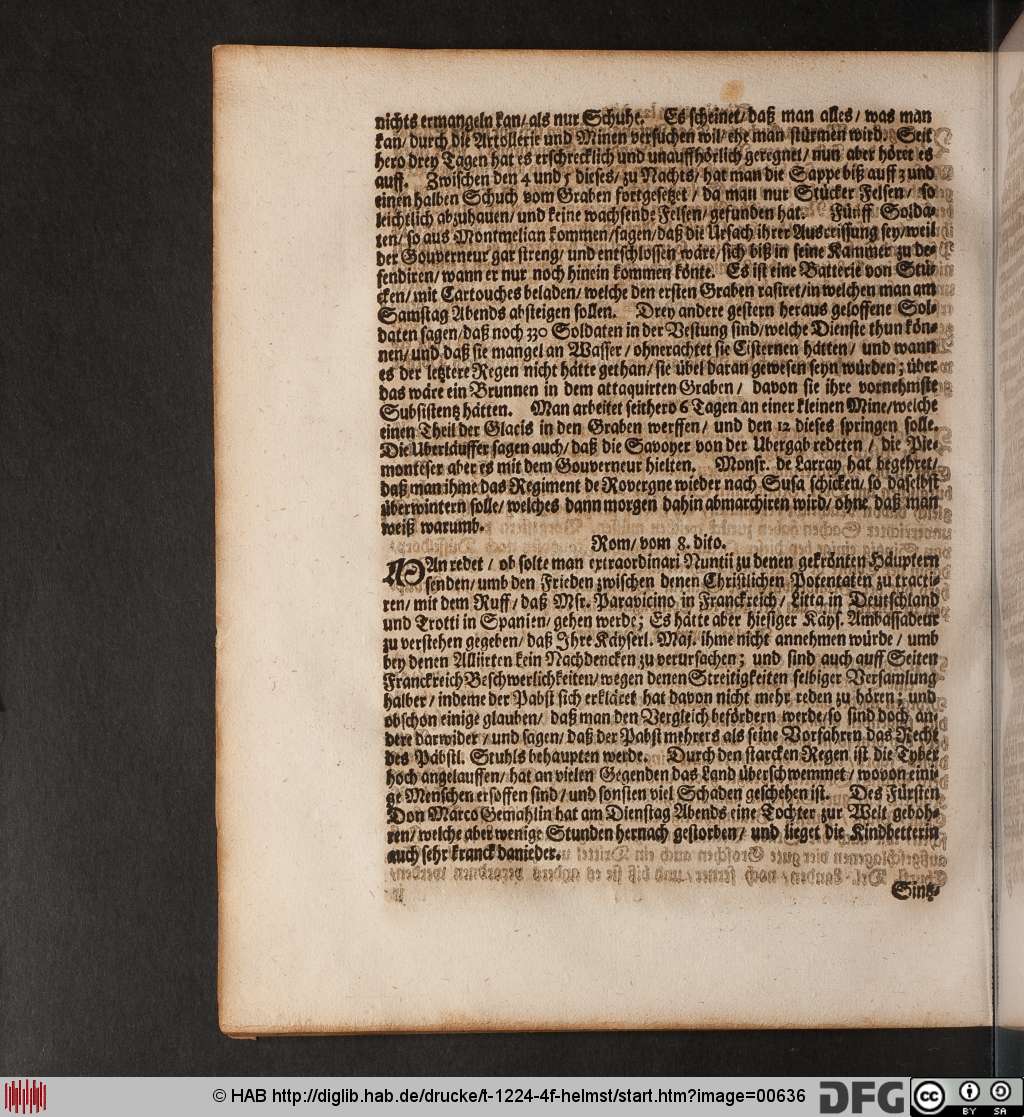 nichts ermangeln kan/ als nur Schuhe. Es scheinet/ daß man alles/ was man
kan/ durch die Artollerie und Minen versuchen wil/ ehe man stürmen wird. Seit
hero drey Tagen hat es erschrecklich und unauffhörlich geregnet/ nun aber höret es
auff. Zwischen den 4 und 5 dieses/ zu Nachts/ hat man die Sappe biß auff 3 und
einen halben Schuch vom Graben fortgesetzet / da man nur Stücker Felsen/ so
leichtlich abzuhauen/ und keine wachsende Felsen/ gefunden hat. Fünff Solda-
ten/ so aus Montmelian kommen/ sagen/ daß die Ursach ihrer Ausreissung sey/ weil
der Gouverneur gar streng/ und entschlossen wäre/ sich biß in seine Kammer zu de-
fendiren/ wann er nur noch hinein kommen könte. Es ist eine Batterie von Stü-
cken/ mit Cartouches beladen/ welche den ersten Graben rasiret/ in welchen man am
Samstag Abends absteigen sollen. Drey andere gestern heraus geloffene Sol-
daten sagen/ daß noch 330 Soldaten in der Vestung sind/ welche Dienste thun kön-
nen/ und daß sie mangel an Wasser / ohnerachtet sie Cisternen hätten/ und wann
es der letztere Regen nicht hätte gethan/ sie übel daran gewesen seyn würden; über
das wäre ein Brunnen in dem attaquirten Graben/ davon sie ihre vornehmste
Subsistentz hätten. Man arbeitet seithero 6 Tagen an einer kleinen Mine/ welche
einen Theil der Glacis in den Graben werffen/ und den 12 dieses springen solle.
Die Uberläuffer sagen auch/ daß die Savoyer von der Ubergab redeten / die Pie-
monteser aber es mit dem Gouverneur hielten. Monsr. de Larray hat begehret/
daß man ihme das Regiment de Rovergne wieder nach Susa schicken/ so daselbst
überwintern solle/ welches dann morgen dahin abmarchiren wird/ ohne daß man
weiß warumb.
Rom/ vom 8. dito.
MAn redet / ob solte man extraordinari Nuntii zu denen gekrönten Häuptern
senden/ umb den Frieden zwischen denen Christlichen Potentaten zu tracti-
ren/ mit dem Ruff/ daß Msr. Paravicino in Franckreich/ Litta in Deutschland
und Trotti in Spanien/ gehen werde; Es hätte aber hiesiger Käys. Ambassadeur
zu verstehen gegeben/ daß Ihre Käyserl. Maj. ihme nicht annehmen würde / umb
bey denen Alliirten kein Nachdencken zu verursachen; und sind auch auff Seiten
Franckreich Beschwerlichkeiten/ wegen denen Streitigkeiten selbiger Versamlung
halber/ indeme der Pabst sich erkläret hat davon nicht mehr reden zu hören; und
obschon einige glauben/ daß man den Vergleich befördern werde/ so sind doch an-
dere darwider / und sagen/ daß der Pabst mehrers als seine Vorfahren das Recht
des Päbstl. Stuhls behaupten werde. Durch den starcken Regen ist die Tyber
hoch angelauffen/ hat an vielen Gegenden das Land überschwemmet / wovon eini-
ge Menschen ersoffen sind / und sonsten viel Schaden geschehen ist. Des Fürsten
Don Marco Gemahlin hat am Dienstag Abends eine Tochter zur Welt geboh-
ren/ welche aber wenige Stunden hernach gestorben/ und lieget die Kindbetterin
auch sehr kranck danieder.
Sintz-
© HAB http://diglib.hab.de/drucke/t-1224-4f-helmst/start.htm?image=00636
DFG
cc BY SA